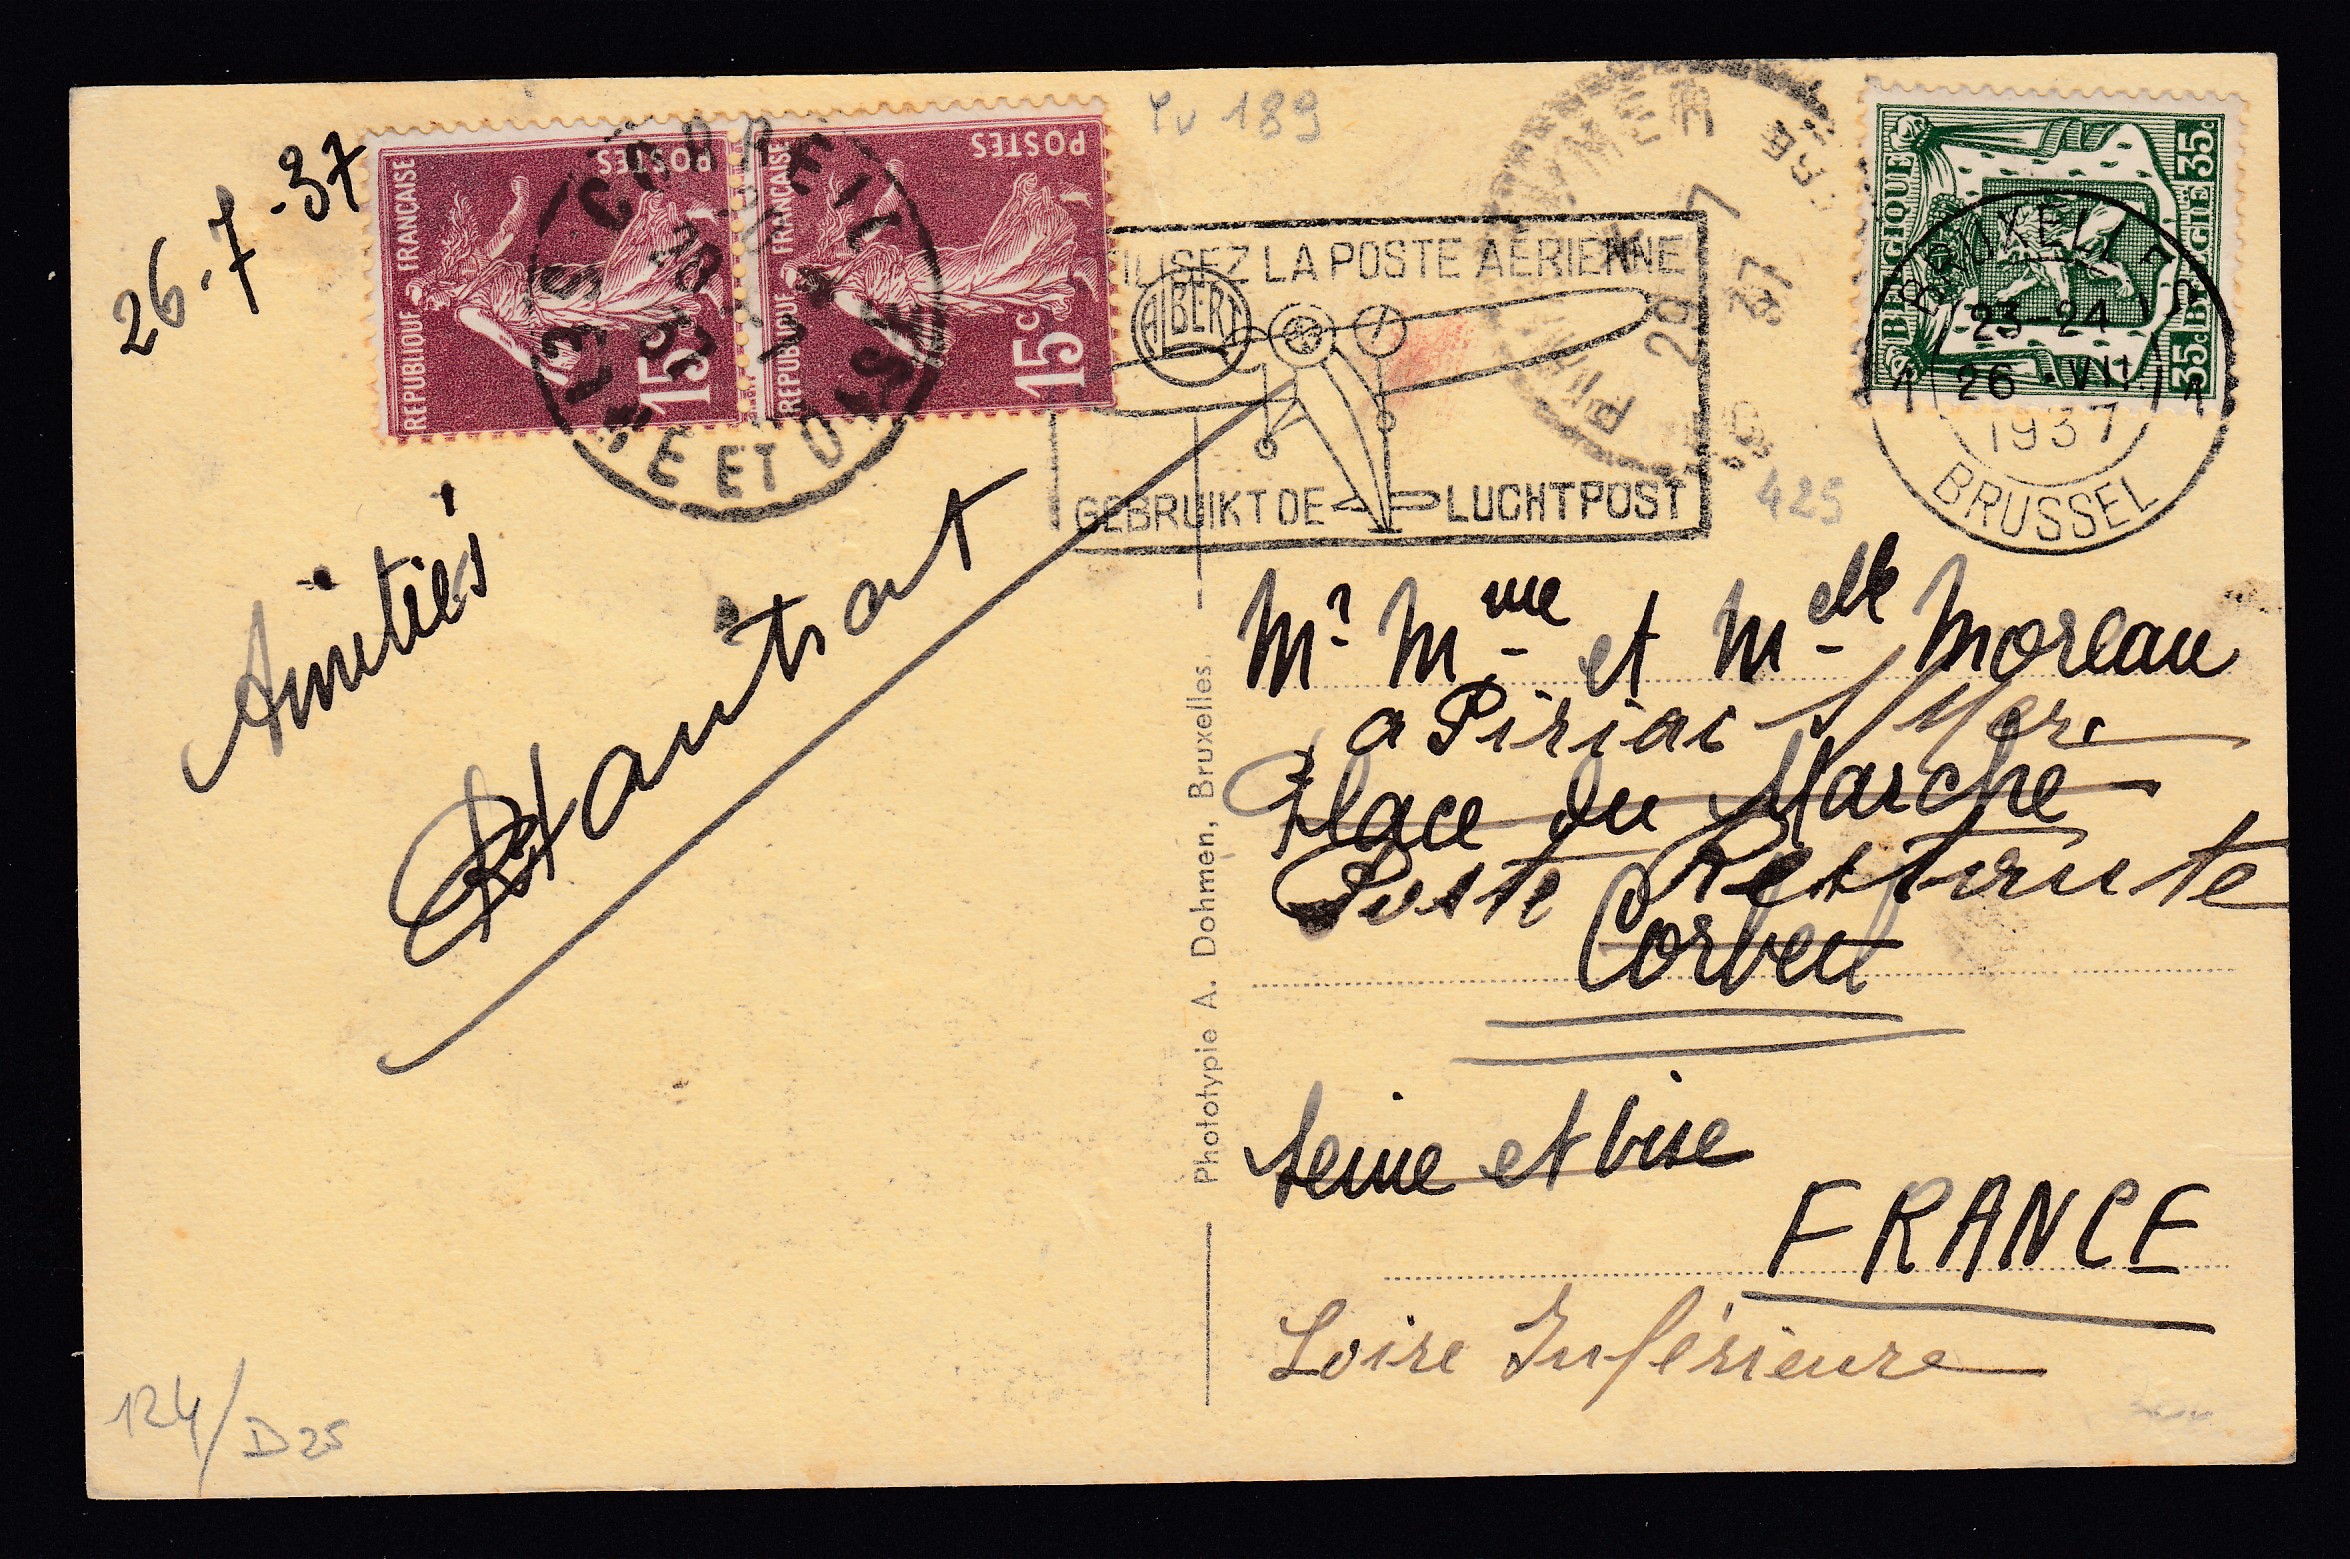 26-7-37
RÉPUBLIQUE FRANÇAISE
POSTES
15c
RÉPUBLIQUE FRANÇAISE
POSTES
15c
CORBEIL
SEINE ET OISE
Yv 189
ILISEZ LA POSTE AÉRIENNE
ALBERT
GEBRUIKT DE LUCHTPOST
29 -7
37
425
BELGIQUE
35c BELGIE 35c
BRUXELLES
23-24
1 26 .VII 1
1937
BRUSSEL
Amitiés
Mr. Mme et Melle Moreau
a Piriac s/Mer.
Place du Marche
Poste Restante
Corbeil
Seine et Oise
FRANCE
Loire Inférieure
Phototypie A. Dohmen, Bruxelles.
124/D25